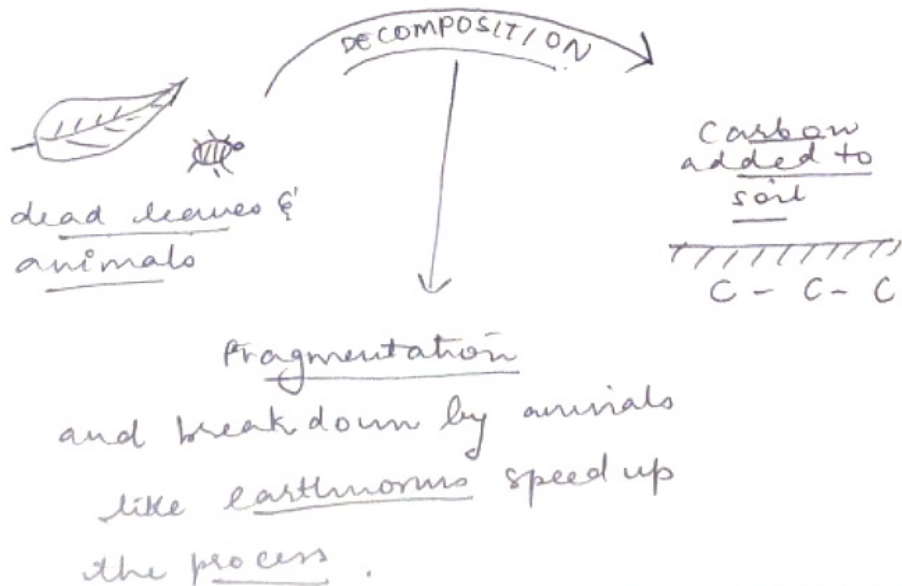 DECOMPOSITION
dead leaves &
animals
Carbon
added to
soil
C - C - C
Fragmentation
and breakdown by animals
like earthworms speed up
the process.